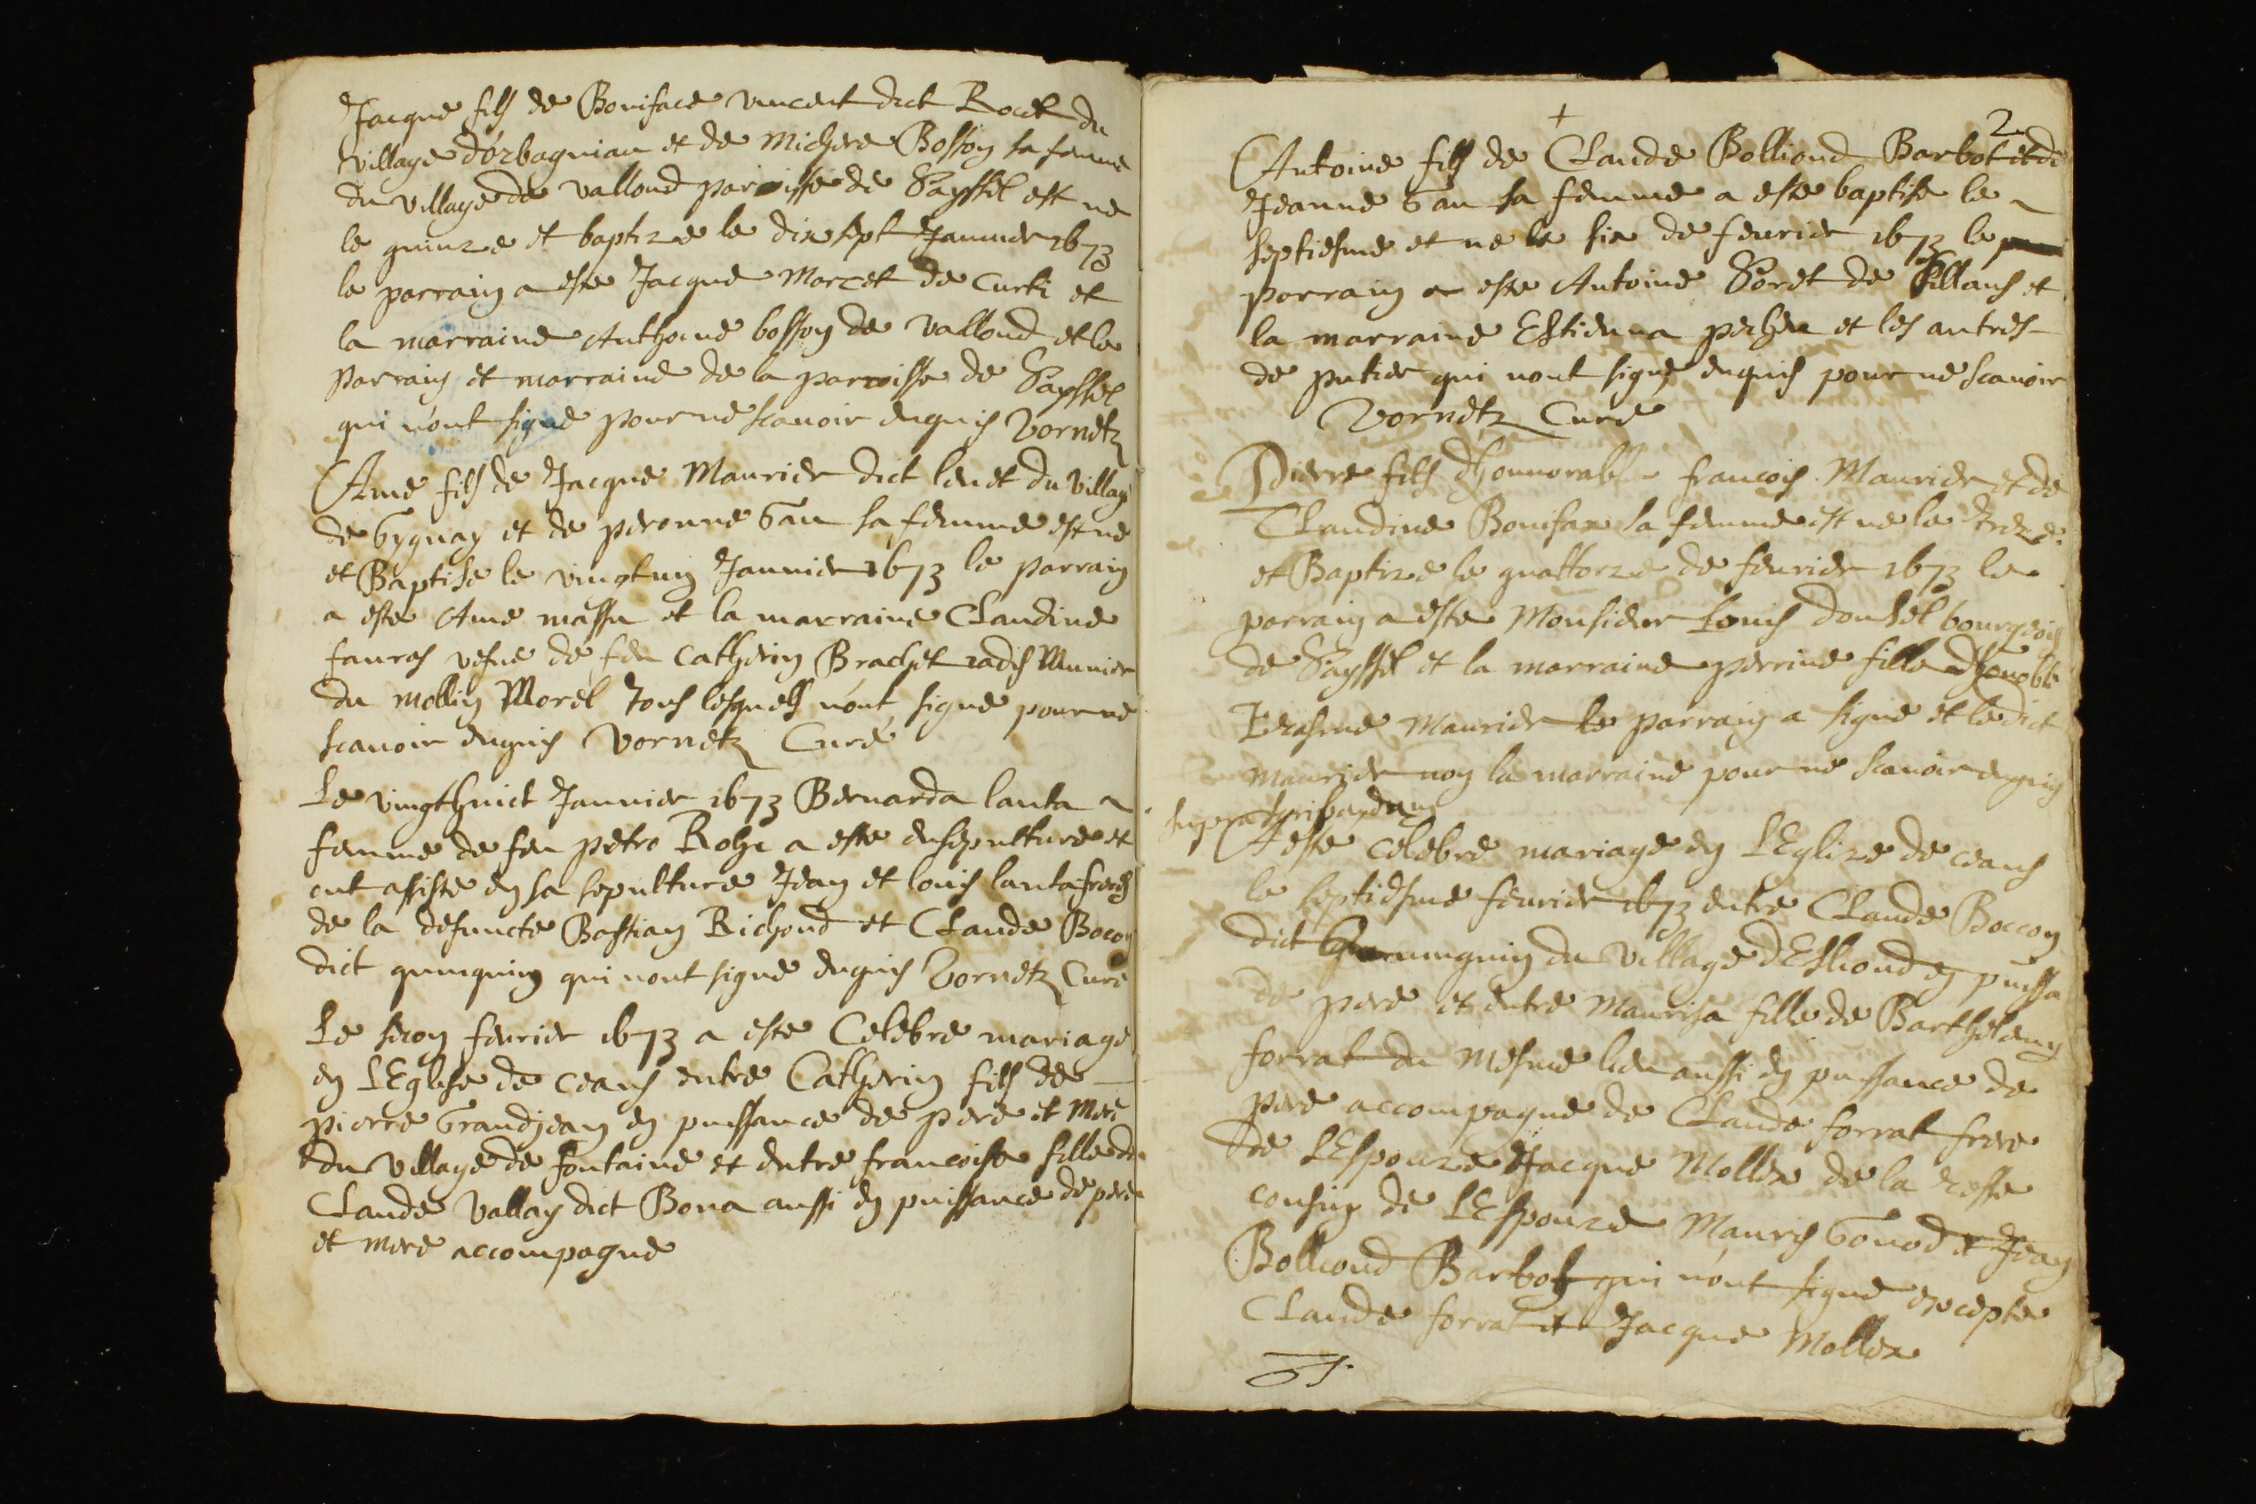 Jacque fils de Boniface vincent dict Rocet du
village d'orbagnian et de michere Bosson sa femme
du village de vallond parroisse de Sayssel est ne
le quinze et baptize le dix sept Januier 1673
le parrain a este Jacque Marcet de Curti et
la marraine Anthoine bosson de vallond et le
parrain et marraine de la parroisse de Sayssel
qui n'ont signe pour ne scauoir enquis Vornetz
Ame fils de Jacque Maurier dict leuet du village
de Gygnay et de peronne Gau sa femme est ne
et Baptise le vingt un Januier 1673 le parrain
a este Ame massu et la marraine Claudine
faures vefue de feu Catherin Brachet iadis Munier
du mollin Morel tous lesquels n'ont signe pour ne
scauoir enquis Vornetz Curé
Le vingthuict Januier 1673 Bernarda lanta
femme de feu petro Roche a este ensepulture et
ont assiste en sa sepulture Jean et louis lanta freres
de la defuncte Bastian Richond et Claude Bocon
dict quinquin qui n'ont signe enquis Vornetz Curé
Le secon feurier 1673 a este Celebre mariage
en L'Eglise de ceans entre Catherin fils de
pierre Grandjean en puissance de pere et Mere
du village de fontaine et entre francoise fille de
Claude Vallay dict Bona aussi en puissance de pere
et mere accompagne
2
Antoine fils de Claude Bolliond Barbot et de
Jeanne Gau sa femme a este baptise le
septiesme et ne le six de feurier 1673 le
parrain a este Antoine Soret de Sillans et
la marraine Estienna pechere et les autres
de putier qui n'ont signe enquis pour ne scauoir
Vornetz Curé
Pierre fils d'honnorable francois Maurier et de
Claudine Bonifax sa femme est ne le treze
et Baptize le quattorze de feurier 1673 le
parrain a este Monsieur Louis donsel bourgeois
de Sayssel et la marraine perrine fille d'honoble
Erasme Maurier le parrain a signe et ledict
maurier non la marraine pour ne scauoir enquis
supra scribendum
A este celebre mariage en L'Eglize de ceans
le septiesme feurier 1673 entre Claude Boccon
dict quinquin du village d'Esliond en puissa
de pere et entre Maurisa fille de Barthelemy
forrat du mesme lieu aussi en puissance de
pere accompagne de Claude forrat frere
de L'Espouze Jacque Mollex de la
cousin de L'Espouze Mauris Gonod et Jean
Bolliond Barbot qui n'ont signe excepte
Claude forrat et Jacque Mollex